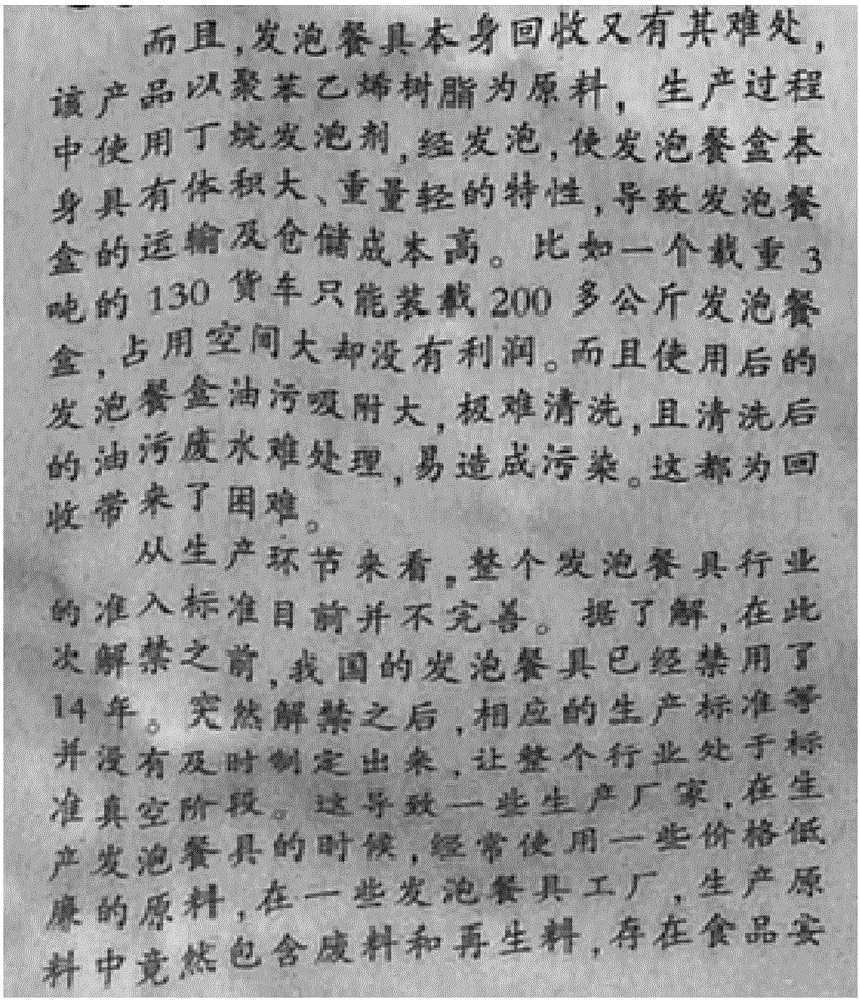 而且,发泡餐具本身回收又有其难处,
该产品以聚苯乙烯树脂为原料,生产过程
中使用丁烷发泡剂,经发泡,使发泡餐盒本
身具有体积大、重量轻的特性,导致发泡餐
盒的运输及仓储成本高。比如一个载重3
吨的130货车只能装载200多公斤发泡餐
盒,占用空间大却没有利润。而且使用后的
发泡餐盒油污吸附大,极难清洗,且清洗后
的油污废水难处理,易造成污染。这都为回
收带来了困难。
从生产环节来看,整个发泡餐具行业
的准入标准目前并不完善。据了解,在此
次解禁之前,我国的发泡餐具已经禁用了
14年。突然解禁之后,相应的生产标准等
并没有及时制定出来,让整个行业处于标
准真空阶段。这导致一些生产厂家,在生
产发泡餐具的时候,经常使用一些价格低
廉的原料,在一些发泡餐具工厂,生产原
料中竟然包含废料和再生料,存在食品安